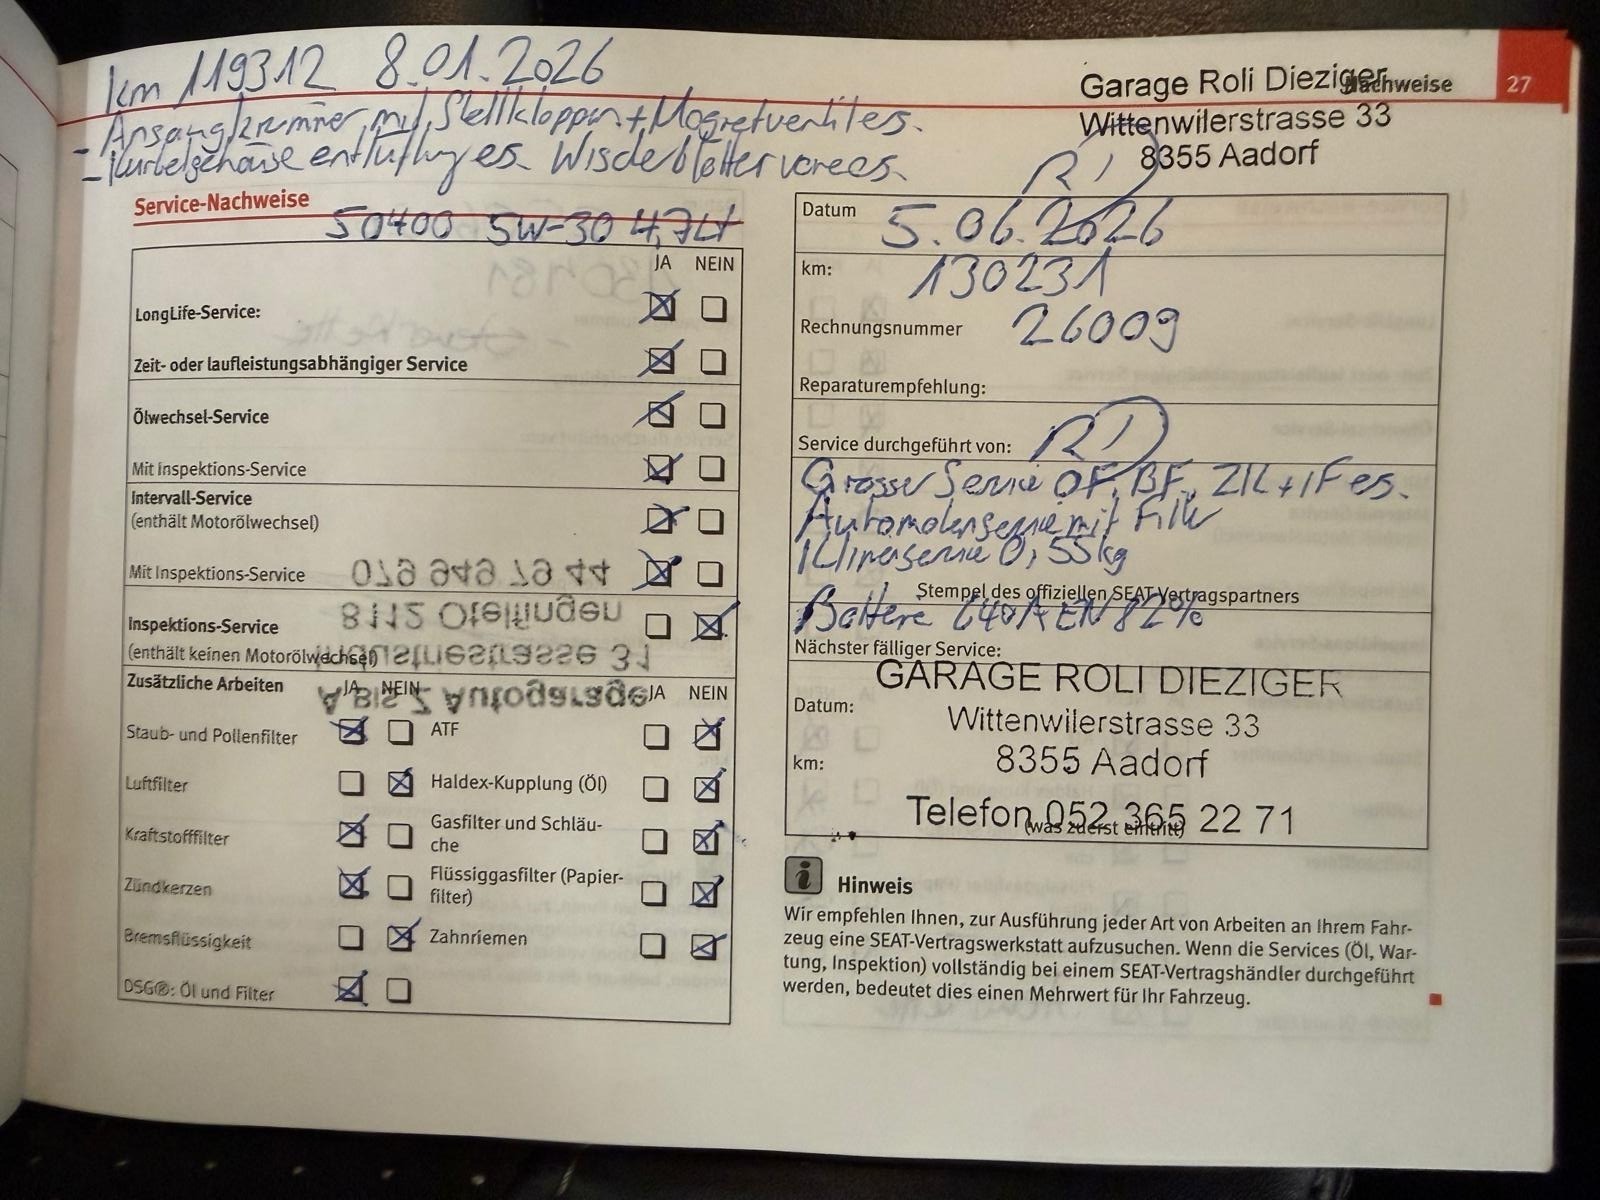 km 119312 8.01.2026
- Ansaugkrümmer mit Stellklappen + Magnetventil es.
- Kurbelgehäuseentlüftung es. Wischerblätter vorn es.
Garage Roli Dieziger
Wittenwilerstrasse 33
8355 Aadorf
Nachweise 27
RD
Service-Nachweise
50400 5W-30 4,7Lt
JA NEIN
LongLife-Service:
Zeit- oder laufleistungsabhängiger Service
Ölwechsel-Service
Mit Inspektions-Service
Intervall-Service
(enthält Motorölwechsel)
Mit Inspektions-Service
Inspektions-Service
(enthält keinen Motorölwechsel)
079 949 79 44
8112 Otelfingen
Industriestrasse 31
A Bis Z Autogarage
Zusätzliche Arbeiten JA NEIN JA NEIN
Staub- und Pollenfilter ATF
Luftfilter Haldex-Kupplung (Öl)
Kraftstofffilter Gasfilter und Schläu-
che
Zündkerzen Flüssiggasfilter (Papier-
filter)
Bremsflüssigkeit Zahnriemen
DSG®: Öl und Filter
Datum 5.06.2026
km: 130231
Rechnungsnummer 26009
Reparaturempfehlung:
Service durchgeführt von: RD
Grosser Service OF, BF, ZK + IF es.
Automatenservice mit Filter
Klimaservice 0,55kg
Stempel des offiziellen SEAT-Vertragspartners
Batterie 640A EN 82%
Nächster fälliger Service:
GARAGE ROLI DIEZIGER
Datum: Wittenwilerstrasse 33
km: 8355 Aadorf
Telefon 052 365 22 71
(was zuerst eintritt)
i Hinweis
Wir empfehlen Ihnen, zur Ausführung jeder Art von Arbeiten an Ihrem Fahr-
zeug eine SEAT-Vertragswerkstatt aufzusuchen. Wenn die Services (Öl, War-
tung, Inspektion) vollständig bei einem SEAT-Vertragshändler durchgeführt
werden, bedeutet dies einen Mehrwert für Ihr Fahrzeug.